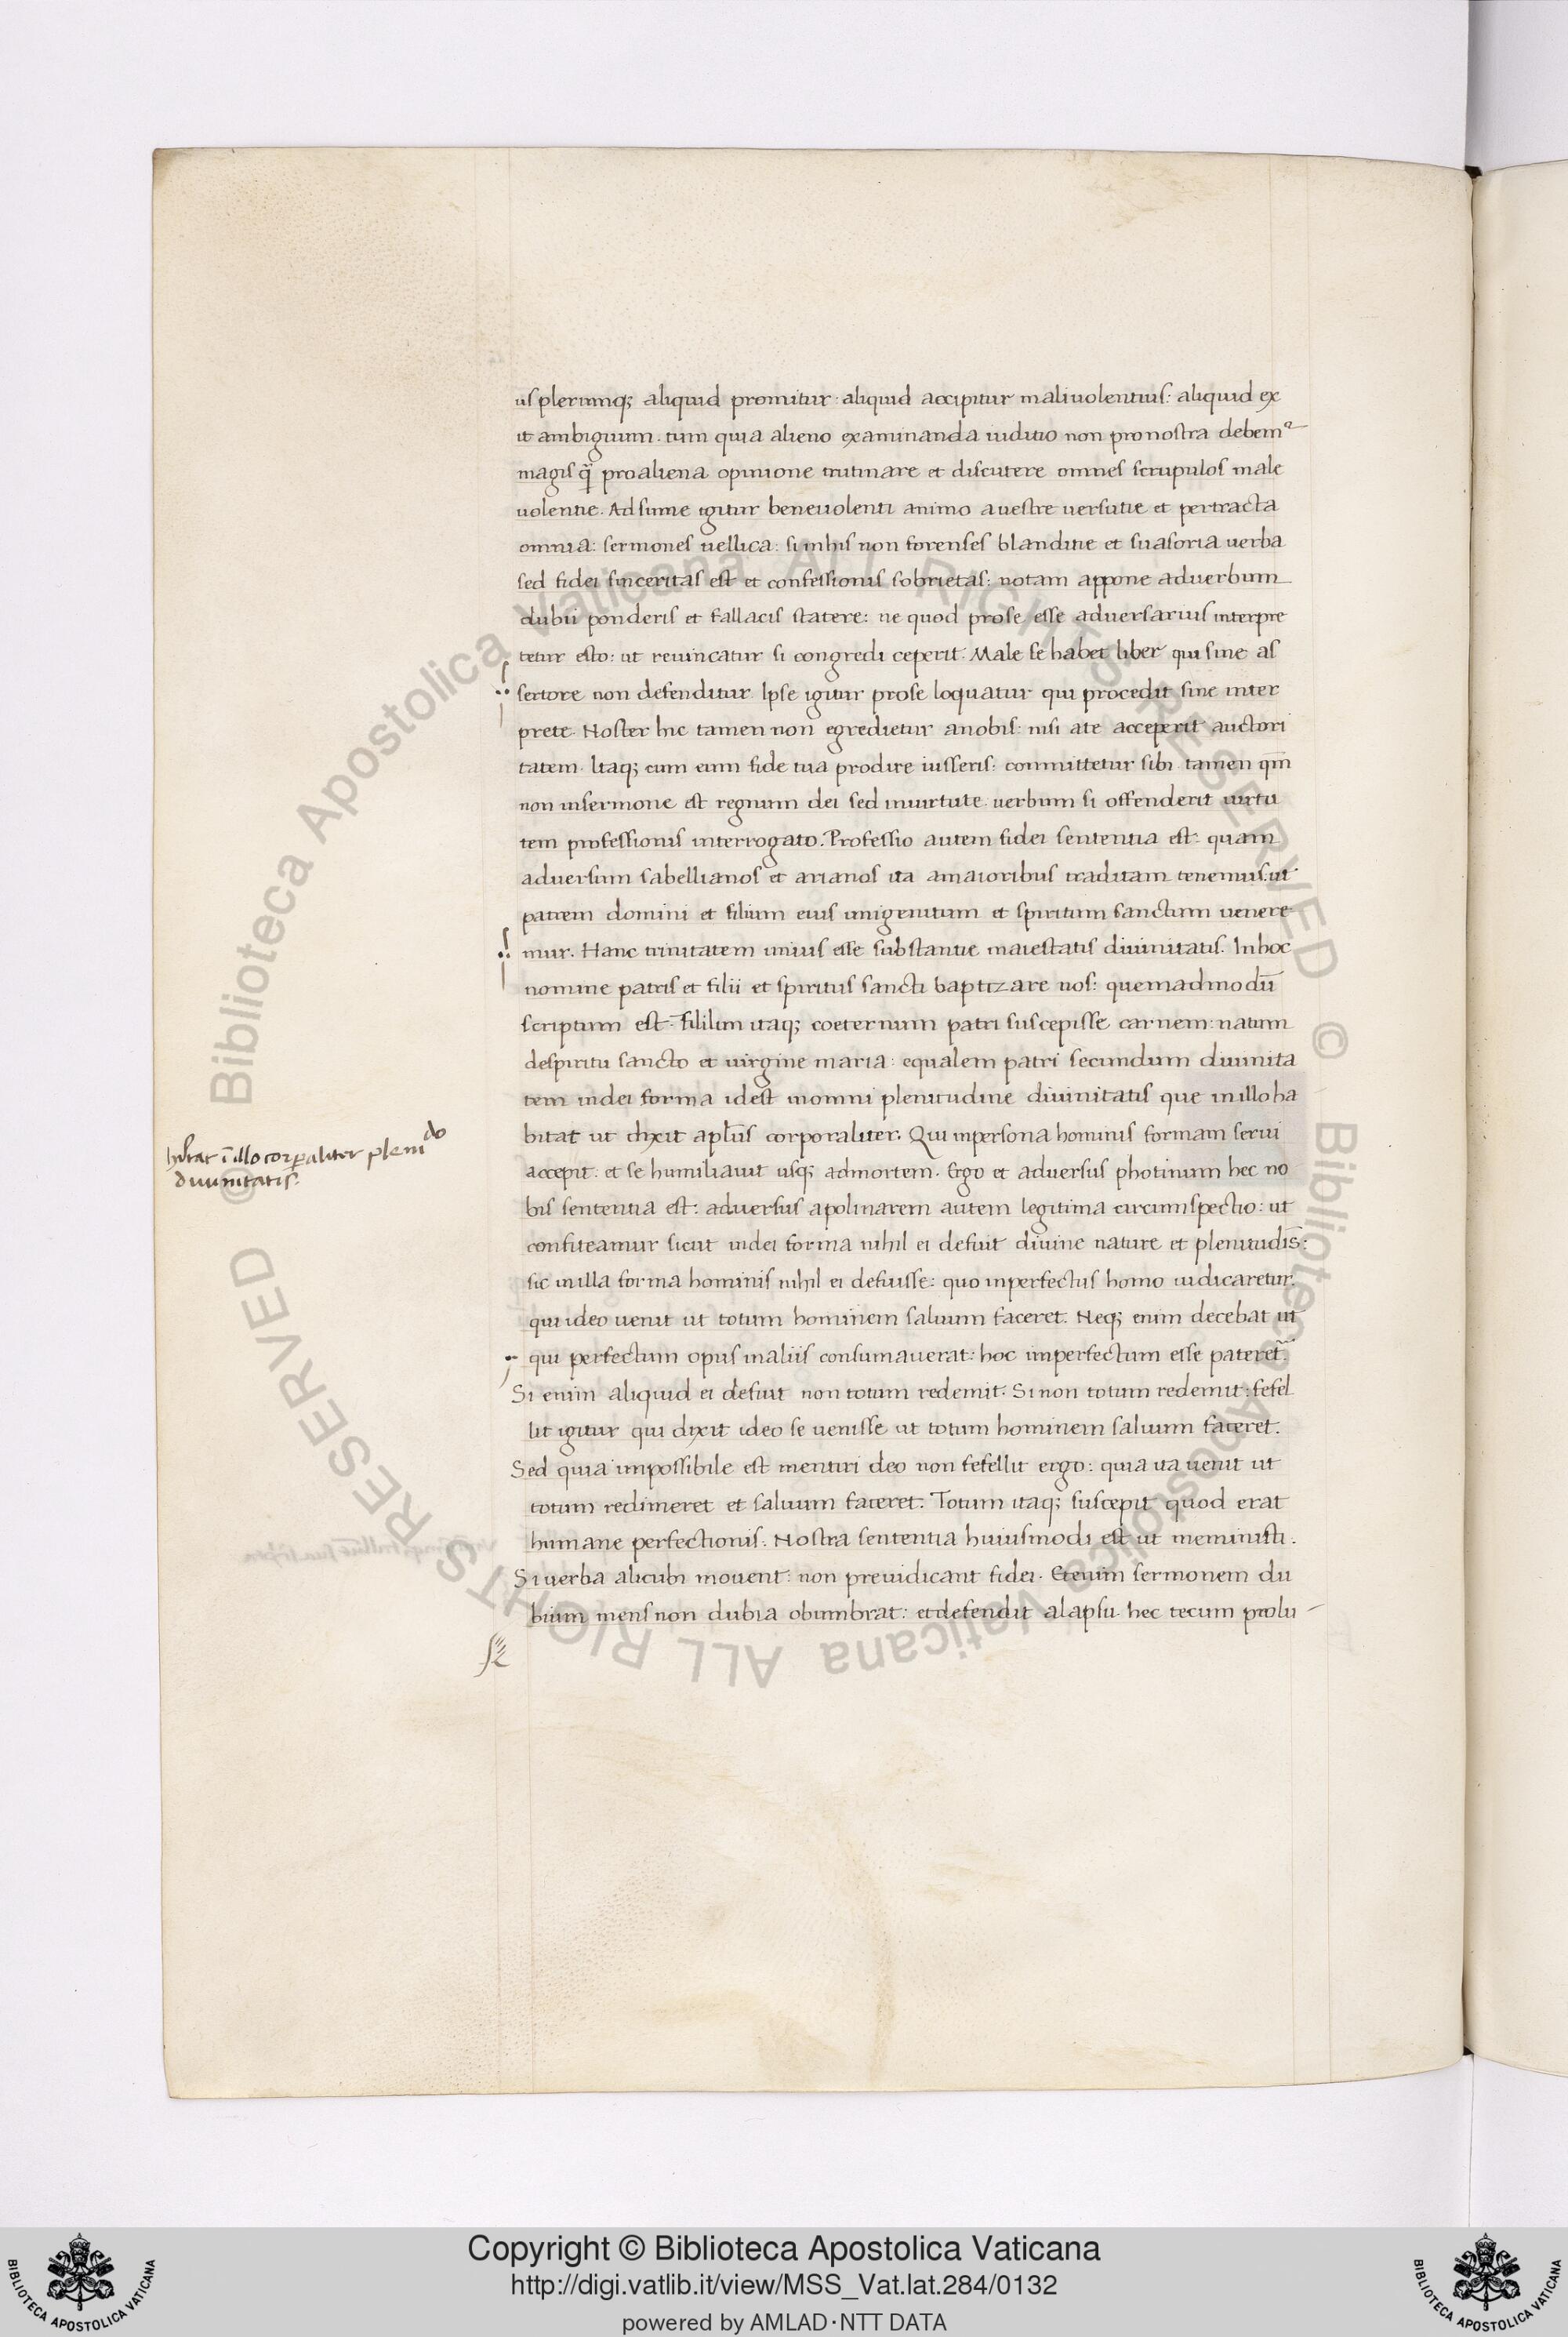 us plerumq; aliquid promitur: aliquid accipitur malivolentius: aliquid ex
it ambiguum. tum quia alieno examinanda iuditio non pro nostra debemꝰ
magis q̃ pro aliena opinione trutinare et discutere omnes scrupulos male
volentie. Adsume igitur benevolenti animo a vestre versutie et pertracta
omnia: sermones vellica: si in his non forenses blanditie et suasoria verba
sed fidei sinceritas est et confessionis sobrietas: notam appone ad verbum
dubii ponderis et fallacis statere: ne quod pro se esse adversarius interpre
tetur esto: ut revincatur si congredi ceperit. Male se habet liber qui sine as
sertore non defenditur. Ipse igitur pro se loquatur qui procedit sine inter
prete. Noster hic tamen non egredietur a nobis: nisi a te acceperit auctori
tatem. Itaq; cum eum fide tua prodire iusseris: committetur sibi. tamen qm̄
non in sermone est regnum dei sed in virtute. verbum si offenderit virtu
tem professionis interrogato. Professio autem fidei sententia est: quam
adversum sabellianos et arianos ita a maioribus traditam tenemus: ut
patrem domini et filium eius unigenitum et spiritum sanctum venere
mur. Hanc trinitatem unius esse substantie maiestatis divinitatis. In hoc
nomine patris et filii et spiritus sancti baptizare nos: quemadmodū
scriptum est. Fililim itaq; coeternum patri suscepisse carnem: natum
de spiritu sancto et virgine maria: equalem patri secundum divinita
tem in dei forma id est in omni plenitudine divinitatis que in illo ha
bitat ut dixit apl̄us corporaliter. Qui in persona hominis formam servi
accepit: et se humiliavit usq; ad mortem. Ergo et adversus photinum hec no
bis sententia est: adversus apolinarem autem legitima circumspectio: ut
confiteamur sicut in dei forma nihil ei defuit divine nature et plenitudīs:
sic in illa forma hominis nihil ei defuisse: quo inperfectus homo iudicaretur.
qui ideo venit ut totum hominem salvum faceret. Neq; enim decebat ut
qui perfectum opus in aliis consumaverat: hoc imperfectum esse pateret̃.
Si enim aliquid ei defuit non totum redemit. Si non totum redemit: fefel
lit igitur qui dixit ideo se venisse ut totum hominem salvum faceret.
Sed quia impossibile est mentiri deo non fefellit ergo: quia ita venit ut
totum redimeret et salvum faceret. Totum itaq; suscepit quod erat
humane perfectionis. Nostra sententia huiusmodi est ut meministi.
Si verba alicubi movent: non preiudicant fidei. Etenim sermonem du
bium mens non dubia obumbrat: et defendit a lapsu. hec tecum prolu
hītat ī illo corꝑaliter plenido
divinitatis.
Copyright © Biblioteca Apostolica Vaticana
http://digi.vatlib.it/view/MSS_Vat.lat.284/0132
powered by AMLAD·NTT DATA
BIBLIOTECA APOSTOLICA VATICANA
BIBLIOTECA APOSTOLICA VATICANA
© Biblioteca Apostolica Vaticana ALL RIGHTS RESERVED
© Biblioteca Apostolica Vaticana ALL RIGHTS RESERVED